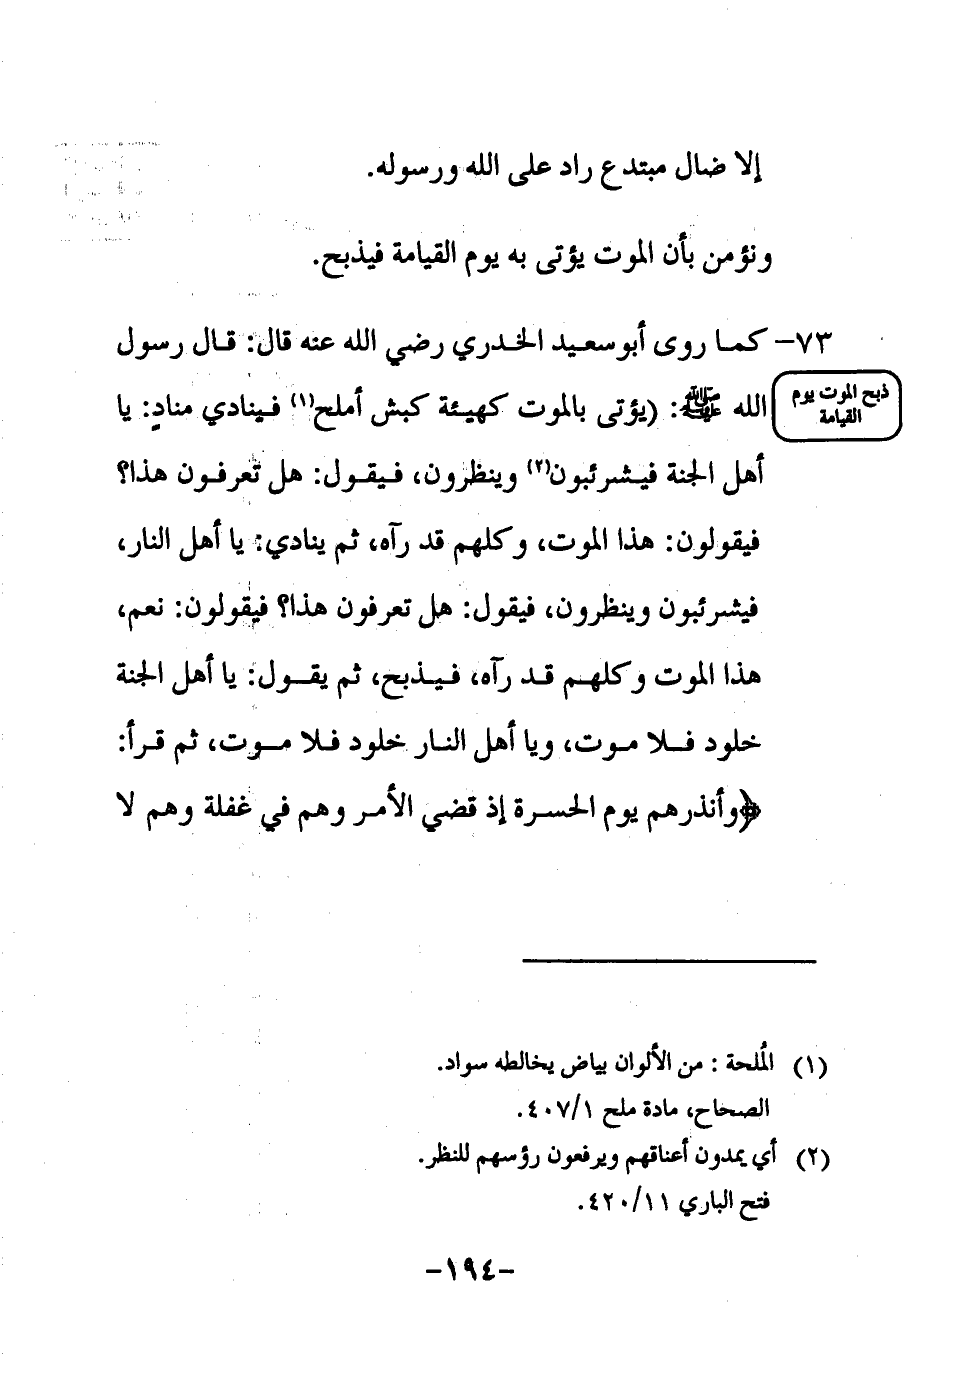 إلا ضال مبتدع راد على الله ورسوله.
ونؤمن بأن الموت يؤتى به يوم القيامة فيذبح.
٧٣- كما روى أبو سعيد الخدري رضي الله عنه قال: قال رسول
ذبح الموت يوم
القيامة
الله ﷺ: (يؤتى بالموت كهيئة كبش أملح(١) فينادي منادٍ: يا
أهل الجنة فيشرئبون(٢) وينظرون، فيقول: هل تَعرفون هذا؟
فيقولون: هذا الموت، وكلهم قد رآه، ثم ينادي: يا أهل النار،
فيشرئبون وينظرون، فيقول: هل تعرفون هذا؟ فيقولون: نعم،
هذا الموت وكلهم قد رآه، فيذبح، ثم يقول: يا أهل الجنة
خلود فلا موت، ويا أهل النار خلود فلا موت، ثم قرأ:
﴿وأنذرهم يوم الحسرة إذ قضي الأمر وهم في غفلة وهم لا
(١) المُلحة : من الألوان بياض يخالطه سواد.
الصحاح، مادة ملح ٤٠٧/١.
(٢) أي يمدون أعناقهم ويرفعون رؤسهم للنظر.
فتح الباري ٤٢٠/١١.
-١٩٤-